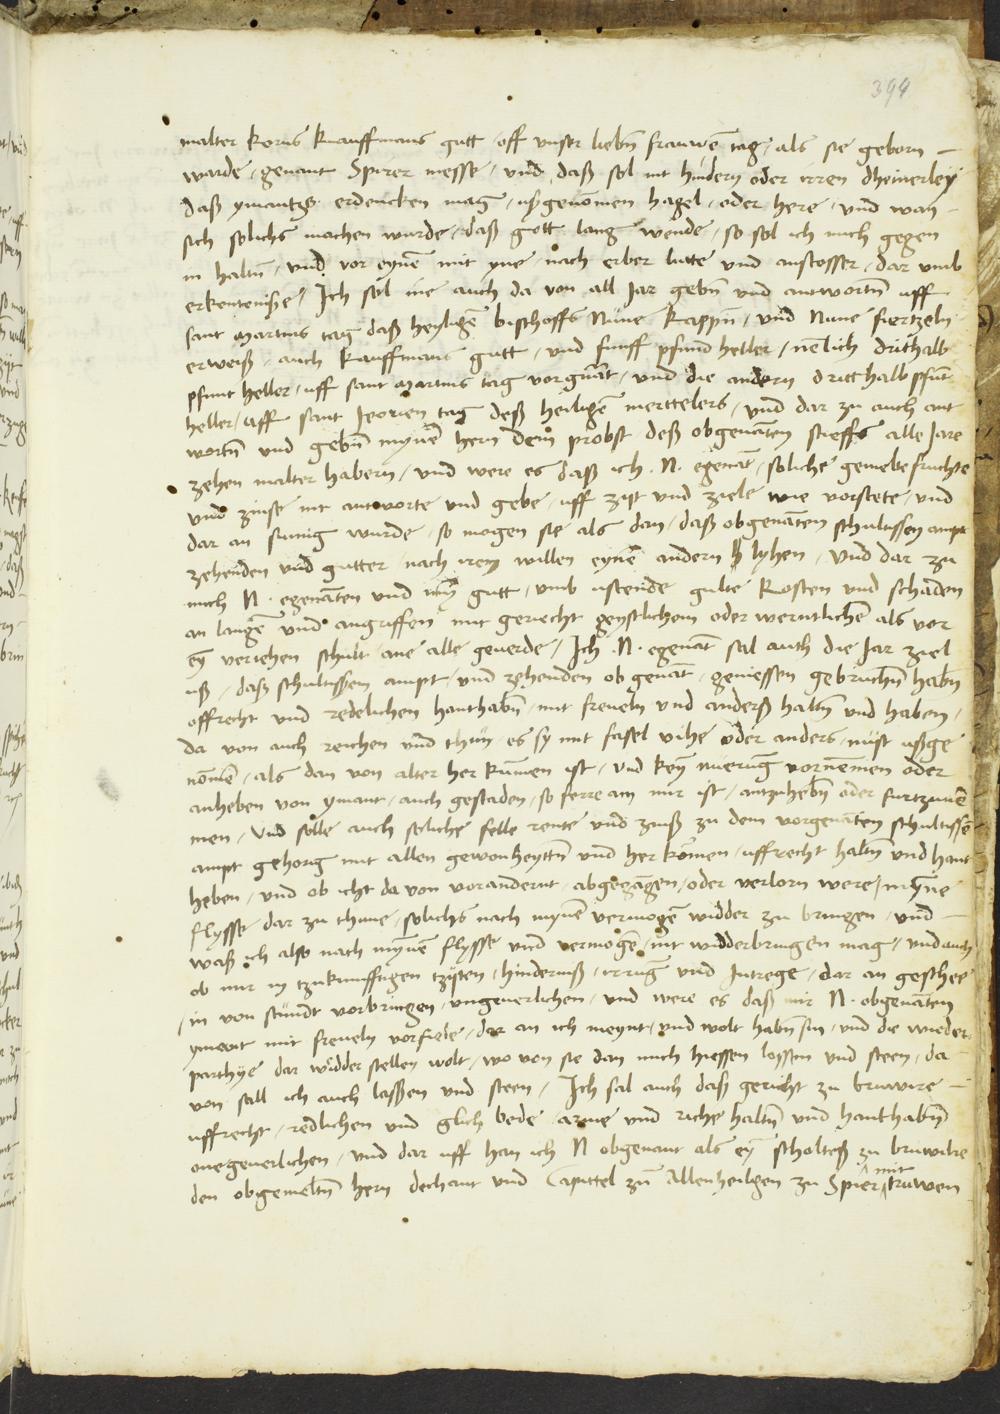 394
malter korns kauffmans gutt / off unser liebn frauwe tag / als sie geborn -
warde / genant Spirer messe / und daß sol nit hindern oder irren dheinerley
daß ymantz erdencken mag / ußgenomen hagel / oder here / und wan -
sich solichs machen wurde / daß gott lang wende / so sol ich mich gegen
in haltn / und vor eyne mit yne nach erber lutte und anstosser / dar umb
erkentenisße / Ich sol ine auch da von all Jar gebn und antwortn uff
sant martins tag daß heylige bischoffs Nüne kappen / und Nune fiertzeln
erweiß / auch kauffmans gutt / und funff pfund heller / nelich drithalb
pfunt heller / uff sant martins tag vorgnat / und die andern dritthalb pfut
heller / uff sant Jeorien tag deß heilige merttelers / und dar zu auch ant
wortn und gebn myne hern dem probst deß obgenate stieffs alle Jare
zehen malter habern / und were es daß ich . N . egenat / soliche fruchte
und zinße nit antworte und gebe / uff zyt und ziele wie vorstete / und
dar an sumig wurde / so mogen sie als dan / daß obgenaten schultissen ampt
zehenden und gutter nach irem willen eyne andern lyhen / und dar zu
mich N . egenaten und myn gutt / umb ustende gulte kosten und schaden
an lange und angriffen mit gericht geystlichem oder werntliche als vor
ey verlehen schult / ane alle geverde / Ich . N . egenat sal auch die Jar ziel
uß / daß schultissen ampt / und zehenden ob genat / geniessen gebruchn habn
offrecht und redelichen hanthabn / mit freveln und anderß haltn und haben /
da von auch reichen und thun / es sy mit fasel vihe oder anders / nust ußge
nomen / als dan von alter her kumen ist / und key nuerug vornemen oder
anheben von ymant / auch gestaden / so ferre am mir ist / antzuhebn oder furtzune
men / und solle auch soliche felle rente und zinß zu dem vorgenaten schultisse
ampt gehorig mit allen gewonheyttn und her komen / uffrecht haltn und hant
heben / und ob icht da von verandernt / abgegangen / oder verlorn were / myne
flysse / dar zu thune / solichs nach myne vermoge widder zu bringen / und -
waß ich also nach myne flysse und vermoge / nit widderbringen mag / und auch
ob mir in tzukunfftigen tzyten / hinderniß / irrug und Intrege / dar an geschee
/ in von stundt vorbringen / ungeverlichen / und were es daß mir N . obgenaten
ymant mit freveln vorfiele / dar an ich meynt / und wolt habn sin / und die wieder
parthye dar widder stellen wolt / wo von sie dan mich hiessen lossen und steen / da -
von sall ich auch laßßen und steen / Ich sal auch daß gericht zu bruwire -
uffrecht / redlichen und glich bede arme und riche haltn und hanthabn
onegeverlichen / und dar uff han ich N obgenant als ey scholteß zu bruwilre
den obgemeltn hern dechant und Capittel zu Allenheilgen zu Spier mit truwen